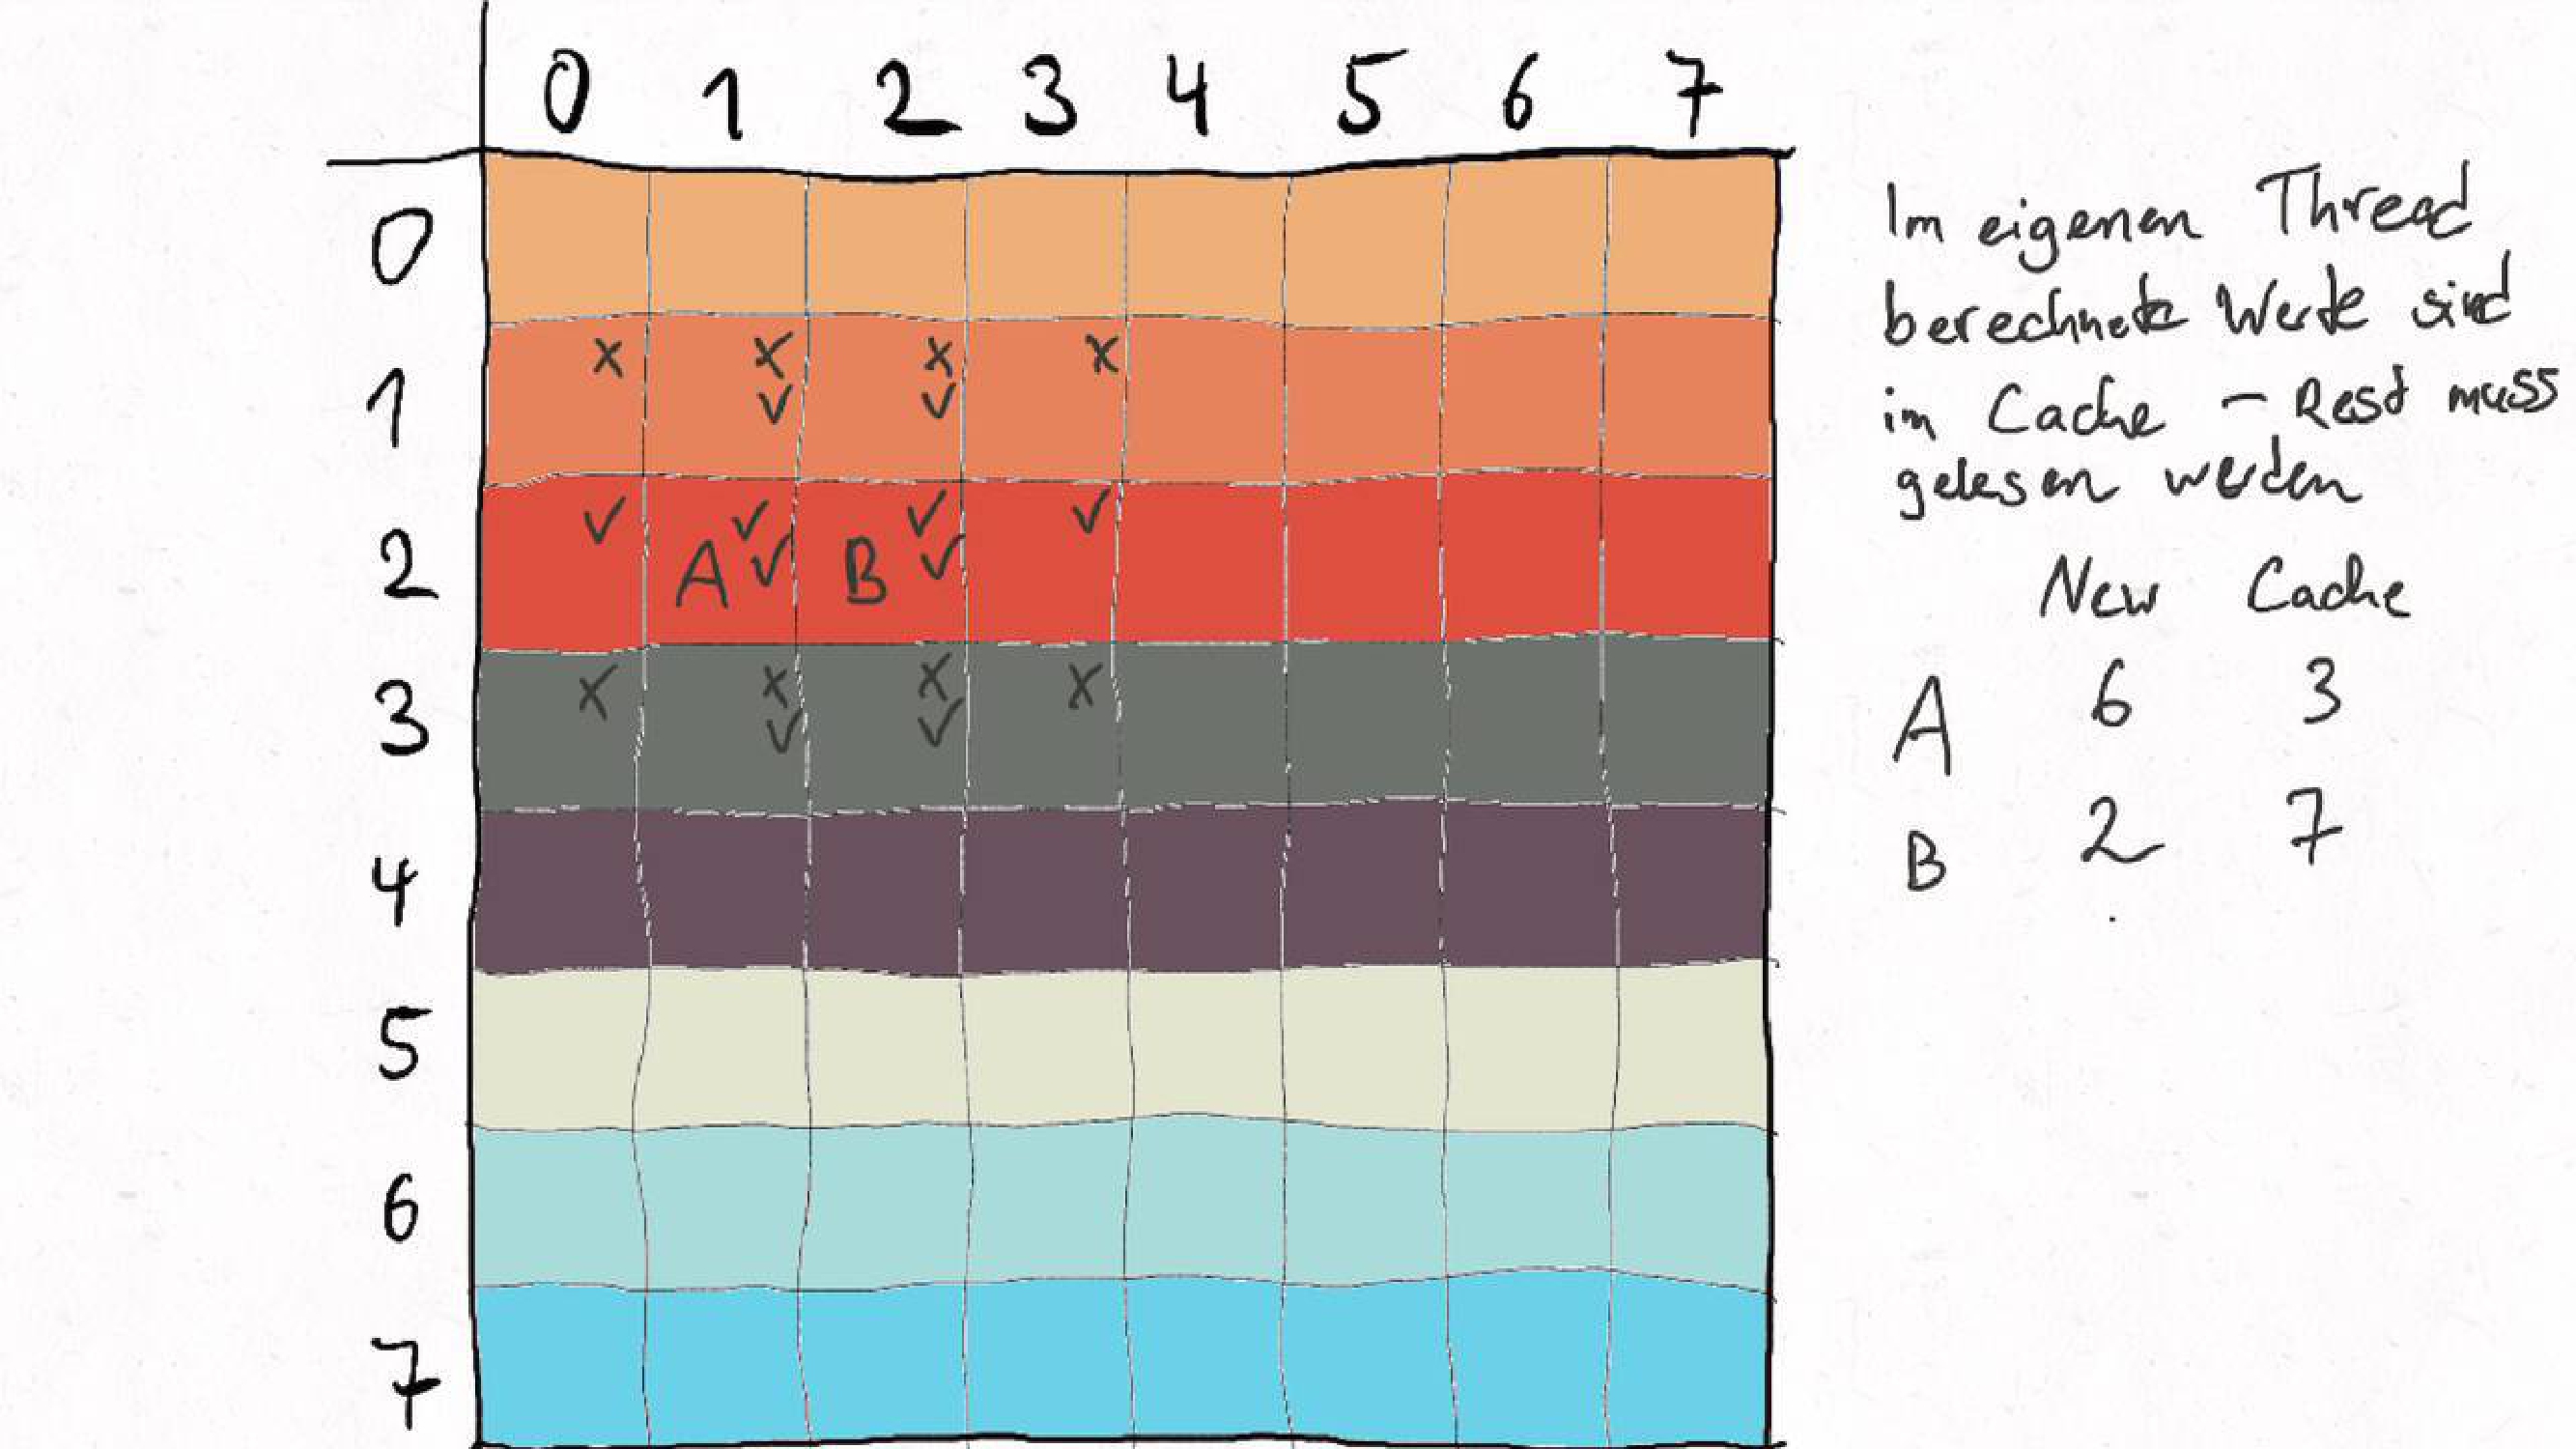 0 1 2 3 4 5 6 7
0
1 x x x x
✓ ✓
2 ✓ ✓ ✓ ✓
A ✓ B ✓
3 x x x x
✓ ✓
4
5
6
7
Im eigenen Thread
berechnete Werte sind
im Cache – Rest muss
gelesen werden
New Cache
A 6 3
B 2 7